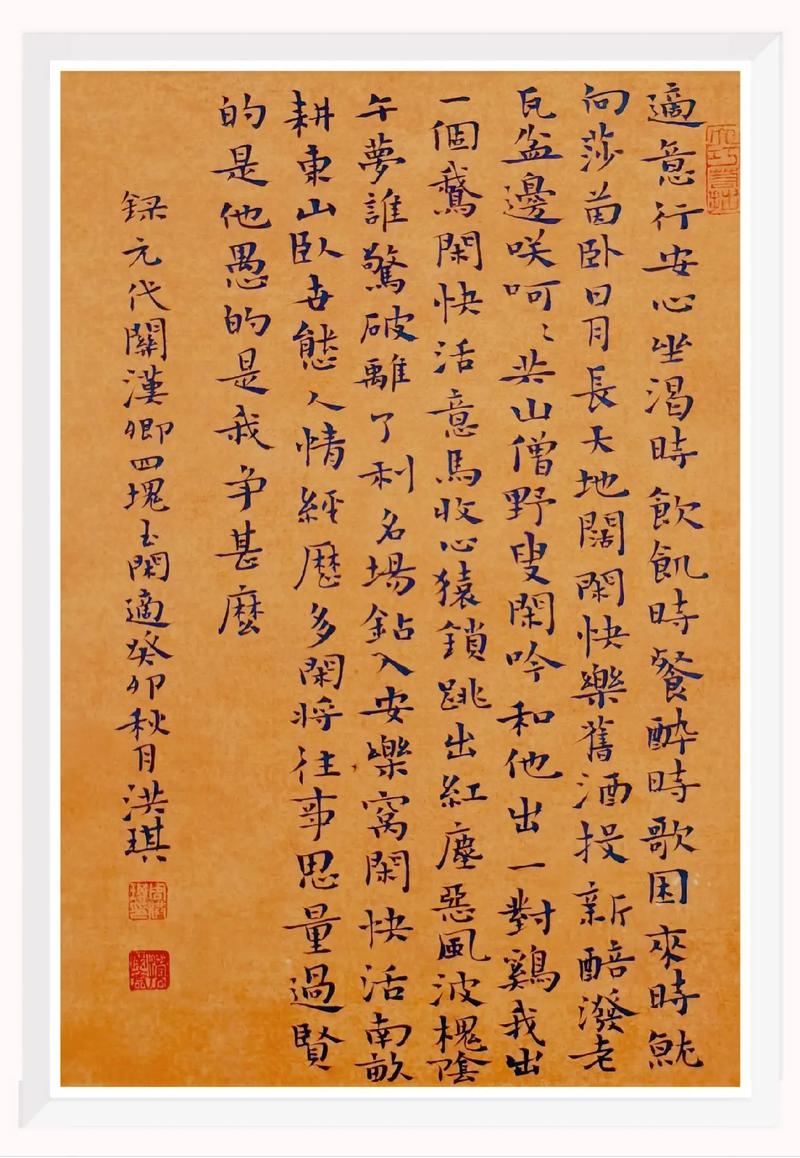 大巧若拙
適意行安心坐渴時飲飢時餐醉時歌困來時就
向莎茵卧日月長天地闊閑快樂舊酒投新醅潑老
瓦盆邊咲呵〻共山僧野叟閑吟和他出一對鷄我出
一個鵝閑快活意馬收心猿鎖跳出紅塵惡風波槐陰
午夢誰驚破離了利名場鉆入安樂窩閑快活南畝
耕東山臥世態人情經歷多閑將往事思量過賢
的是他愚的是我争甚麼
録元代關漢卿四塊玉閑適癸卯秋月洪琪